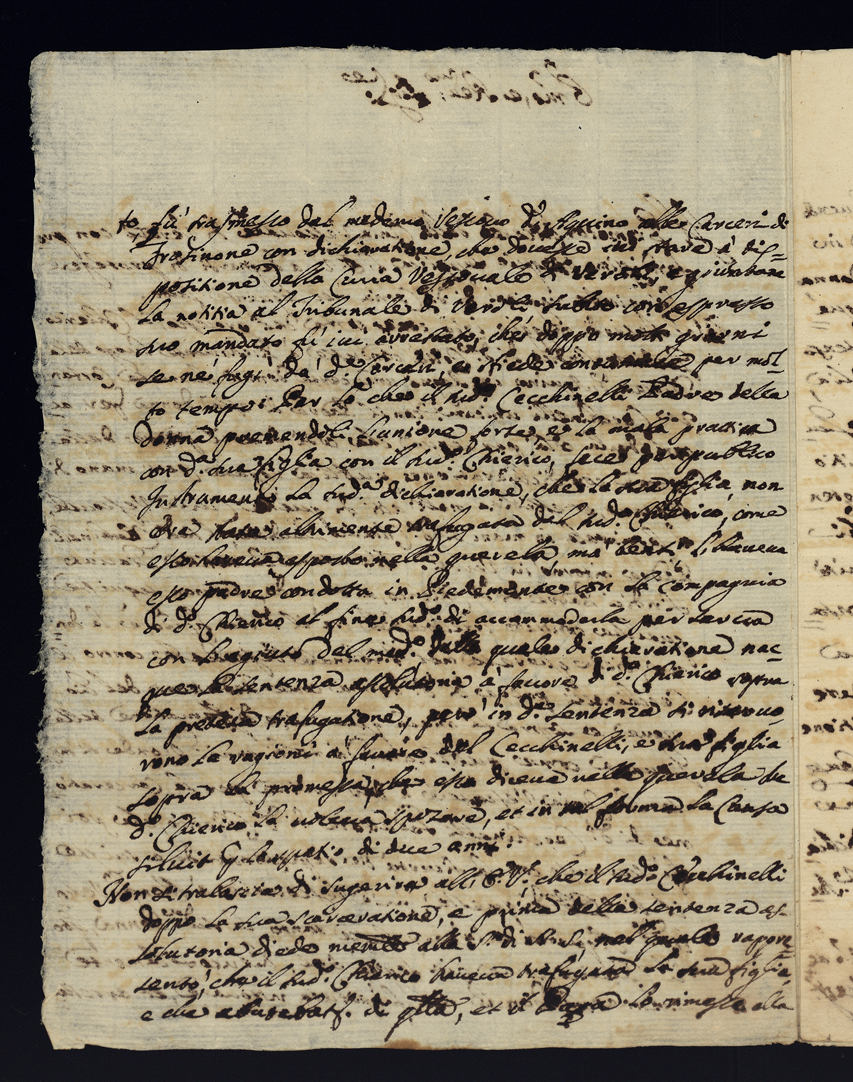 to fù trasmesso dal medemo Vescovo d'Aquino alle Carceri di
Frosinone con dichiaratione, che dovesse ivi stare à dis=
positione della Curia Vescovale di Veroli, e
la notitia al Tribunale di Veroli subito con espresso
suo mandato fù ivi arrestato, che doppo molti giorni
se ne fugì da d.e Carceri, e stiede contumace per mol=
to tempo: Per lo che il sud.o Cecchinelli Padre della
donna premendoli l'unione forte, e la mala prattica
con d.a sua figlia con il sud.o Chierico, fece per publico
Instrumento la sud.a dichiaratione, che la sua figlia non
era stata altrimente trafugata dal sud.o Chierico, come
esso haveva esposto nella querela, mà bensì l'haveva
esso padre condotta in Piedemonte con la compagnia
di d.o Chierico al fine sud.o di accommodarla per serva
con l'agiuto del med.o dalla quale dichiaratione nac=
que la sentenza assolutoria à favore di d.o Chierico sopra
la pretesa trafugatione, però in d.a sentenza si riservo=
rono le ragioni à favore del Cecchinelli, e sua figlia
sopra la promessa, che esso diceva nella querela che
d.o Chierico la voleva sposare, et in tal forma la Causa
siluit p lo spatio di due anni.
Non si tralascia di sugerire all' che il sud.o Cecchinelli
doppo la sua scarceratione, e prima della sentenza as=
solutoria diede memle alla S.tà di N.S. nel quale rapore=
sentò, che il sud.o Chierico haveva trafugata la sua figlia,
e che abusavasi di qlla, et il Papa lo rimesse alla